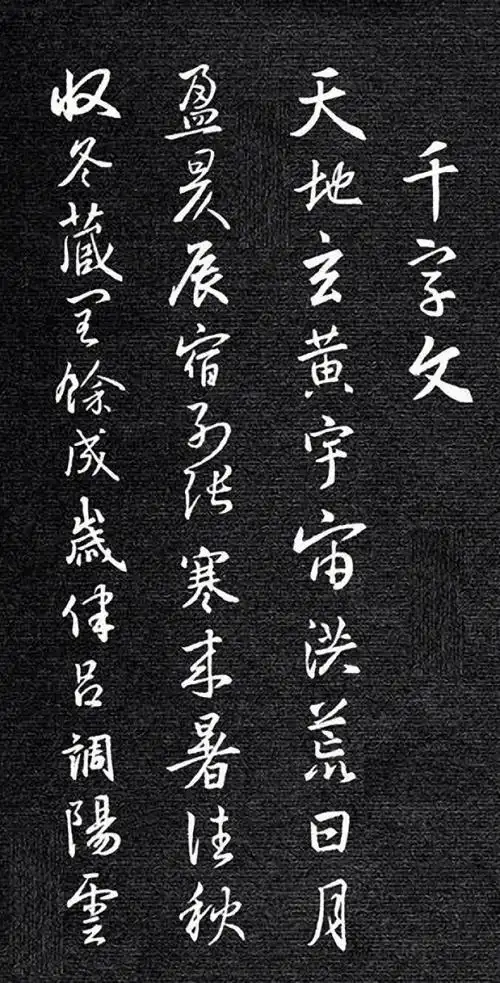 千字文
天地玄黄宇宙洪荒日月
盈昃辰宿列張寒来暑往秋
收冬蔵閏餘成歲律吕調陽雲